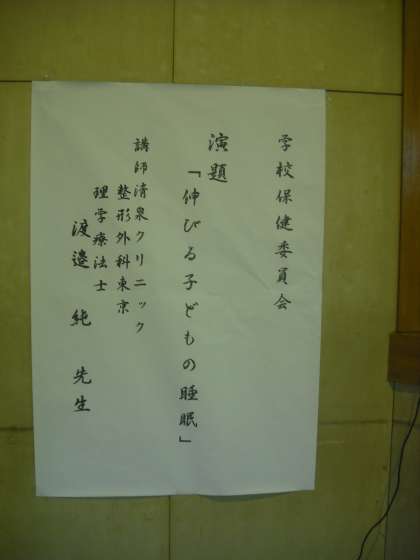 学校保健委員会
演題
「伸びる子どもの睡眠」
講師清泉クリニック
整形外科東京
理学療法士
渡邉 純 先生